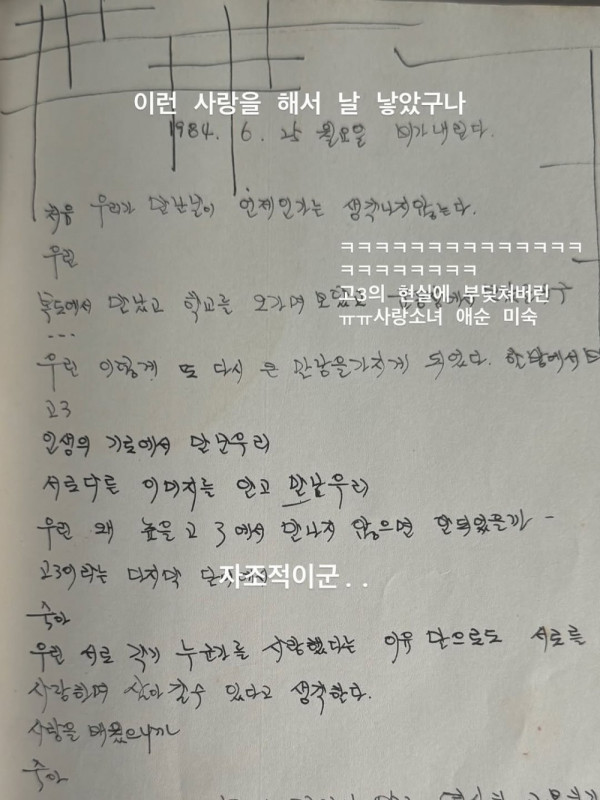 이런 사랑을 해서 날 낳았구나
1984. 6. 25 월요일 비가 내린다.
처음 우리가 만난날이 언제인가는 생각나지않는다.
우린
ㅋㅋㅋㅋㅋㅋㅋㅋㅋㅋㅋㅋㅋㅋ
ㅋㅋㅋㅋㅋㅋㅋㅋ
고3의 현실에 부딪쳐버린
ㅠㅠ사랑소녀 애순 미숙
복도에서 만났고 학교를 오가며
...
우린 이렇게 또 다시 큰 만남을가지게 되었다. 한반에서
고3
인생의 기로에서 만난우리
서로다른 이미지를 안고 만난우리
우린 왜 높을고 3에서 만나지 않으면 안되었을까 -
고3이라는 마지막
자조적이군..
숙아
우린 서로 각기 누군가를 사랑했다는 이유 만으로도 서로를
사랑하며 살아갈수 있다고 생각한다.
사랑을 배웠으니까
숙아